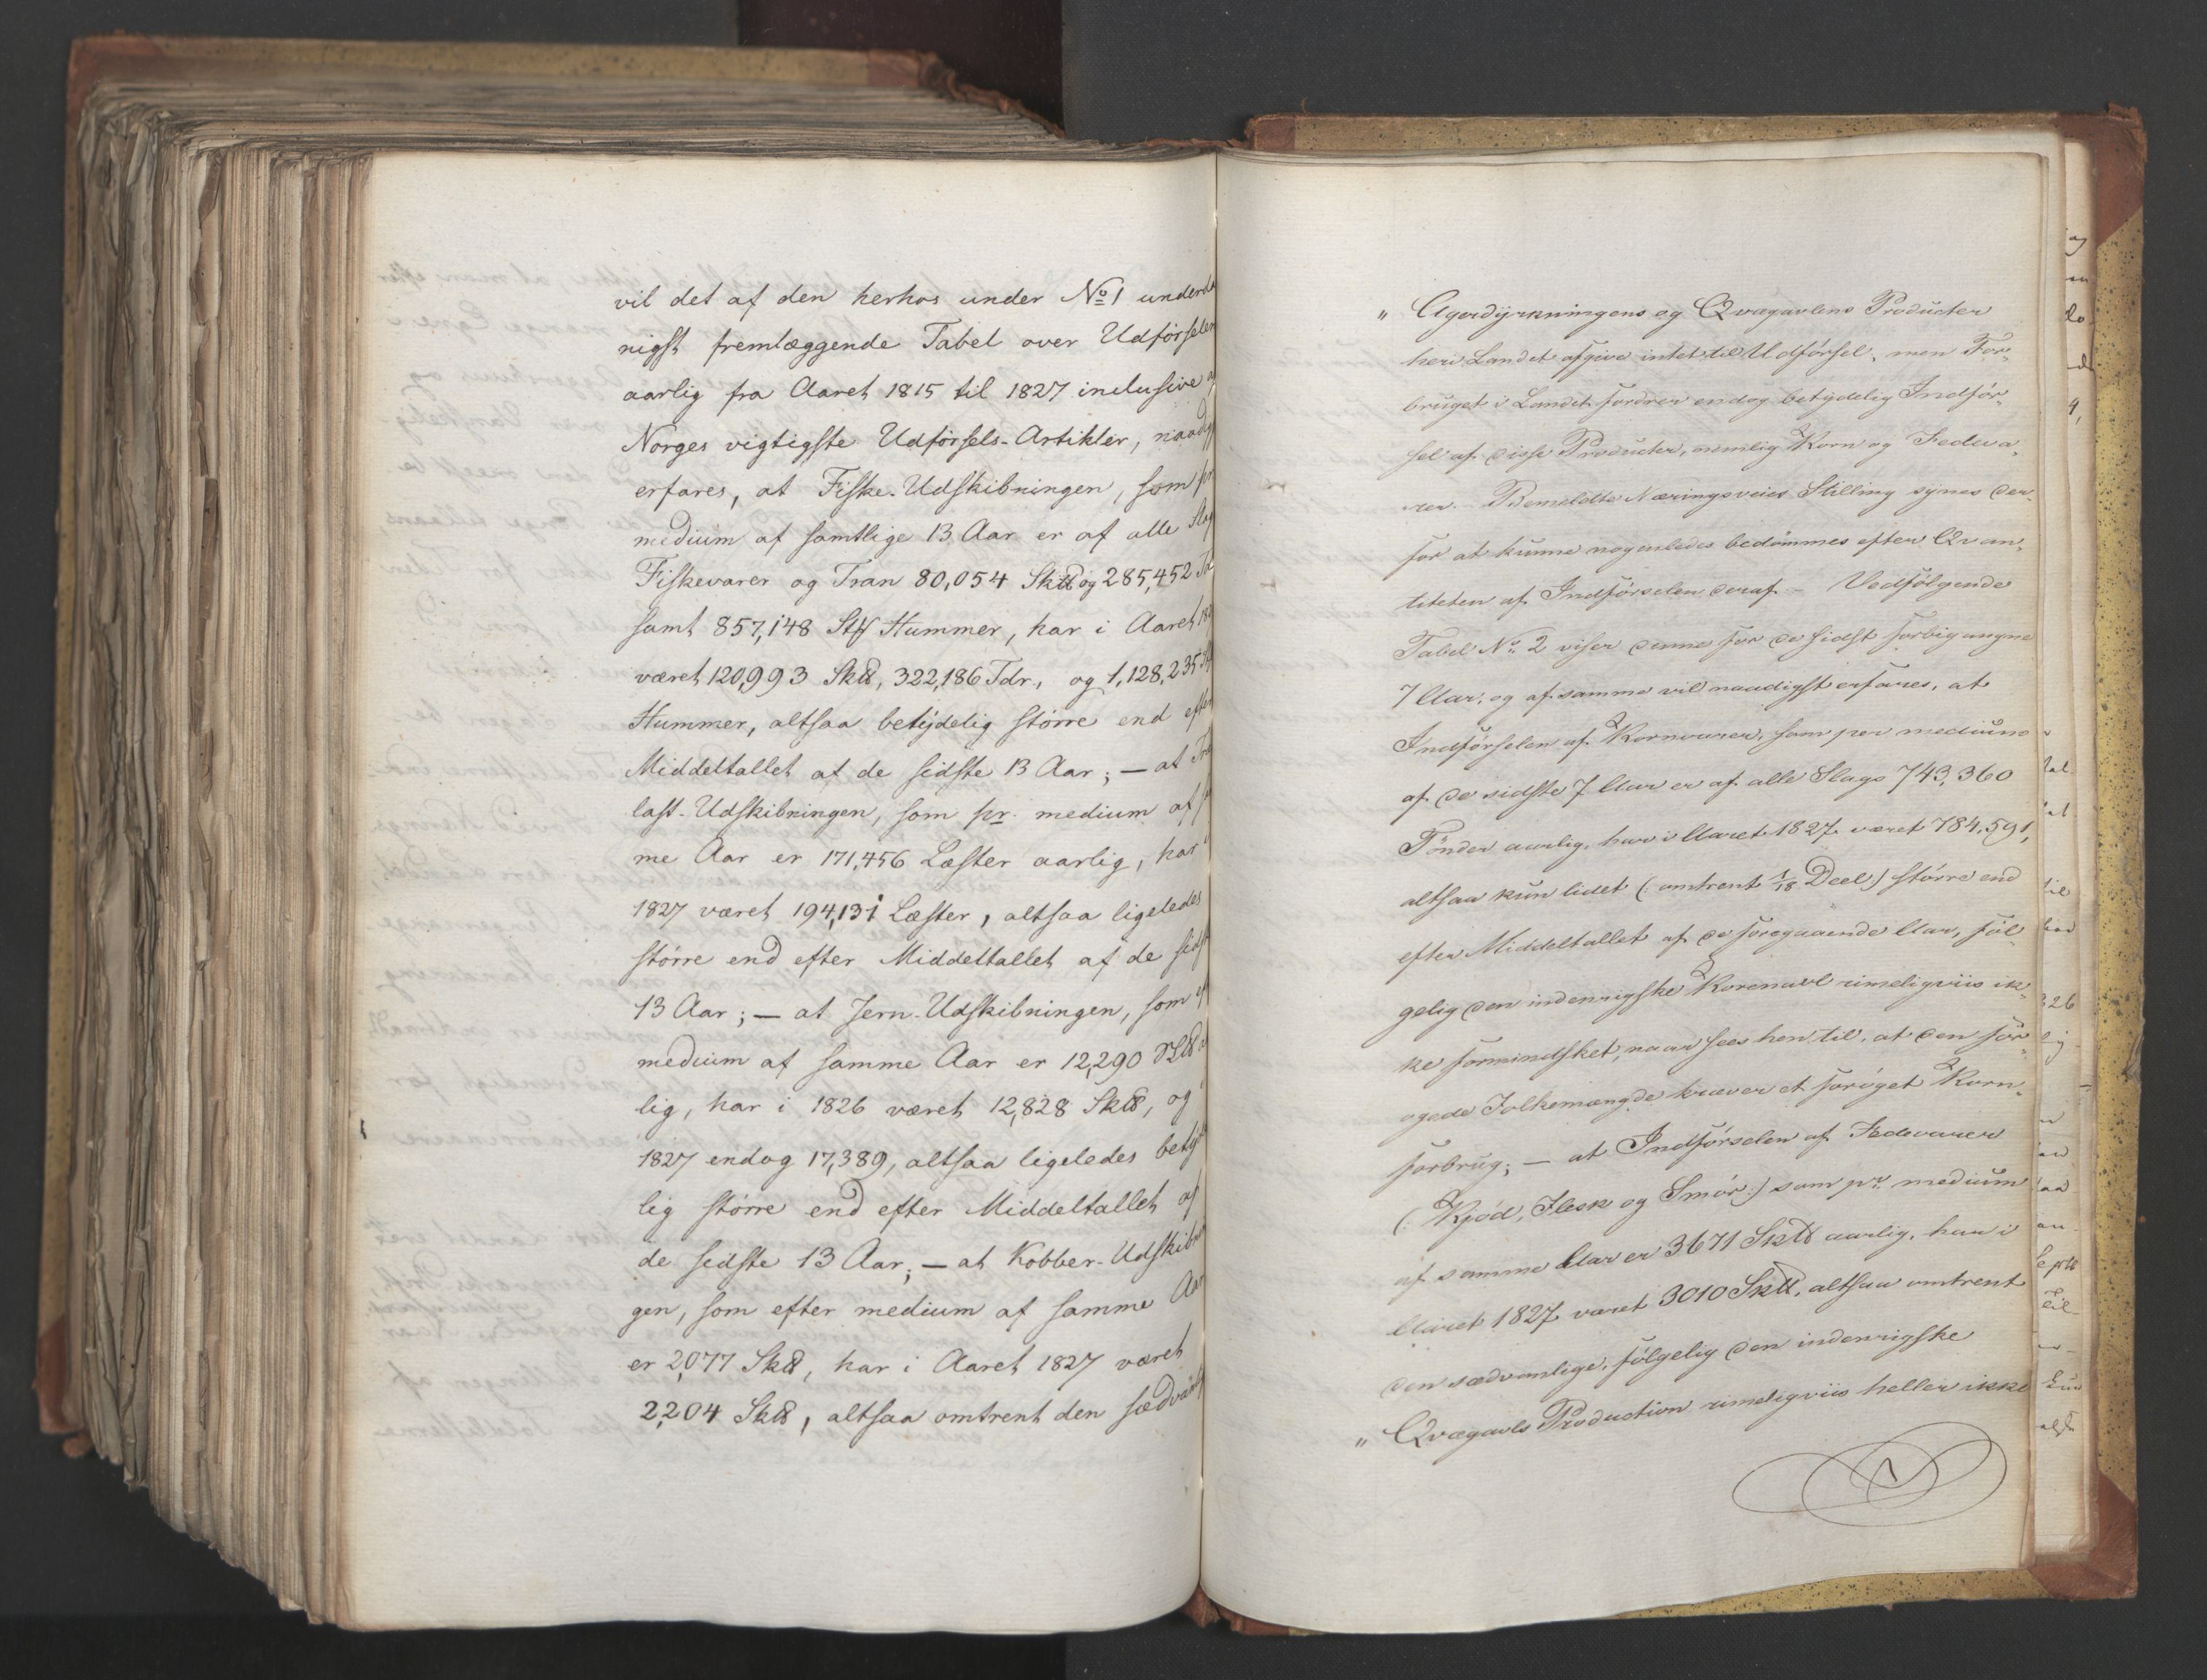 vil det af den herhos under No 1 underda
nigst fremlæggende Tabel over Udførselen
aarlig fra Aaret 1815 til 1827 inclusive af
Norges vigtigste Udførsels-Artikler, naadigst
erfares, at Fiske-Udskibningen, som pr
medium af samtlige 13 Aar er af alle Slags
Fiskevarer og Tran 80,054 Sk℔ og 285,452 Td
samt 857,148 Stk Hummer, har i Aaret 182
været 120,993 Sk℔, 322,186 Tdr., og 1,128,235 St
Hummer, altsaa betydelig større end efter
Middeltallet af de sidste 13 Aar; — at Træ
last-Udskibningen, som pr. medium af sa
me Aar er 171,456 Læster aarlig, har i
1827 været 194,131 Læster, altsaa ligeledes
større end efter Middeltallet af de sidste
13 Aar; — at Jern-Udskibningen, som ef
medium af samme Aar er 12,290 Sk℔ a
lig, har i 1826 været 12,828 Sk℔, og i
1827 endog 17,389, altsaa ligeledes betyde
lig større end efter Middeltallet af
de sidste 13 Aar; — at Kobber-Udskibnin
gen, som efter medium af samme Aar
er 2,077 Sk℔, har i Aaret 1827 været
2,204 Sk℔, altsaa omtrent den sædvanlig
" Agerdyrkningens og Qvægavlens Producter
heri Landet afgive intet til Udførsel, men For-
bruget i Landet fordrer endog betydelig Indfør-
sel af disse Producter, nemlig Korn og Fedeva-
rer. – Bemeldte Næringsveies Stilling synes der-
for at kunne nogenledes bedømmes efter Qvan-
titeten af Indførselen deraf – Vedfølgende
Tabel No 2 viser denne for de sidst forbigangne
7 Aar, og af samme vil naadigst erfares, at
Indførselen af Kornvarer, som per medium
af de sidste 7 Aar er af alle Slags 743,360
Tønder aarlig, har i Aaret 1827 været 784,591,
altsaa kun lidet (omtrent 1/18 Deel) større end
efter Middeltallet af de foregaaende Aar, føl-
gelig den indenrigske Kornavl rimeligviis ik-
ke formindsket, naar sees hen til, at den for-
øgede Folkemængde kræver et forøget Korn-
forbrug; — at Indførselen af Fedevarer
(: Kjød, Flesk og Smør:) som pr. medium
af samme Aar er 3671 Sk℔ aarlig, har i
Aaret 1827 været 3010 Sk℔, altsaa omtrent
den sædvanlige, følgelig den indenrigske
" Qvægavls Production rimeligviis heller ikke